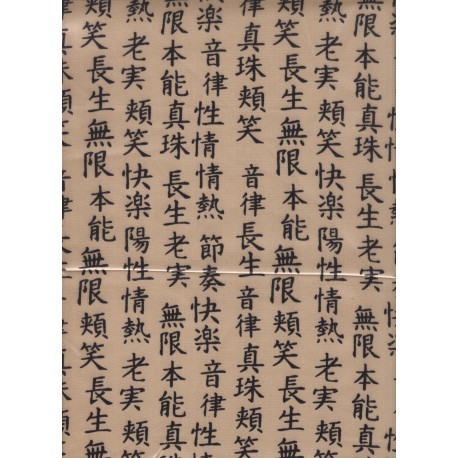 快楽音律性情情熱節奏快楽音律性
無限本能真珠長生老実無限本能真
熱老実頬笑快楽陽性情熱老実頬
頬笑長生無限本能無限頬笑長生無
律真珠頬笑 音律長生音律真珠頬笑
快楽音律性情情熱節奏快楽音律性
無限本能真珠長生老実無限本能真
熱老実頬笑快楽陽性情熱老実頬
頬笑長生無限本能無限頬笑長生無